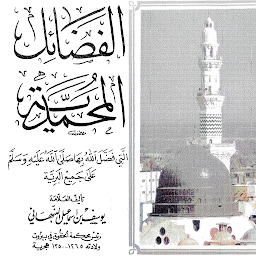 الفضائل
المحمدية
التي فضل الله بها صلى الله عليه وسلم
على جميع البرية
تأليف العلامة
يوسف بن إسماعيل النبهاني
رئيس محكمة الحقوق في بيروت
ولادته ١٢٦٥ - ١٣٥٠ هجرية